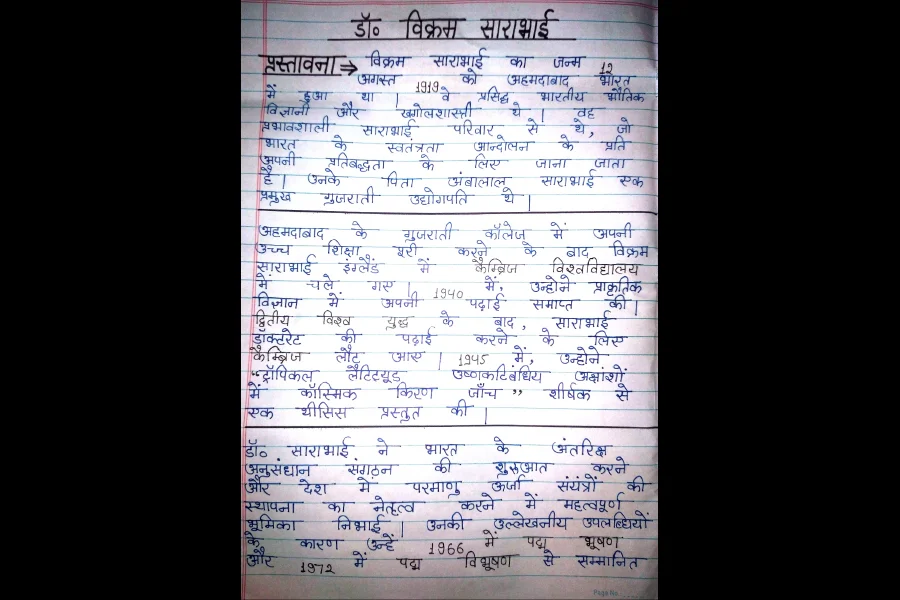 डॉ० विक्रम साराभाई
प्रस्तावना ⇒ विक्रम साराभाई का जन्म 12
अगस्त 1919 को अहमदाबाद भारत
में हुआ था | वे प्रसिद्ध भारतीय भौतिक
विज्ञानी और खगोलशास्त्री थे | वह
प्रभावशाली साराभाई परिवार से थे, जो
भारत के स्वतंत्रता आन्दोलन के प्रति
अपनी प्रतिबद्धता के लिए जाना जाता
है | उनके पिता अंबालाल साराभाई एक
प्रमुख गुजराती उद्योगपति थे |
अहमदाबाद के गुजराती कॉलेज में अपनी
उच्च शिक्षा पूरी करने के बाद विक्रम
साराभाई इंग्लैंड में कैम्ब्रिज विश्वविद्यालय
में चले गए | 1940 में, उन्होने प्राकृतिक
विज्ञान में अपनी पढ़ाई समाप्त की |
द्वितीय विश्व युद्ध के बाद, साराभाई
डॉक्टरेट की पढ़ाई करने के लिए
कैम्ब्रिज लौट आए | 1945 में, उन्होने
“ट्रॉपिकल लैटिट्यूड उष्णकटिबंधिय अक्षांशों
में कॉस्मिक किरण जाँच” शीर्षक से
एक थीसिस प्रस्तुत की |
डॉ० साराभाई ने भारत के अंतरिक्ष
अनुसंधान संगठन की शुरुआत करने
और देश में परमाणु ऊर्जा संयंत्रों की
स्थापना का नेतृत्व करने में महत्वपूर्ण
भूमिका निभाई | उनकी उल्लेखनीय उपलब्धियों
के कारण उन्हें 1966 में पद्म भूषण
और 1972 में पद्म विभूषण से सम्मानित
Page No.